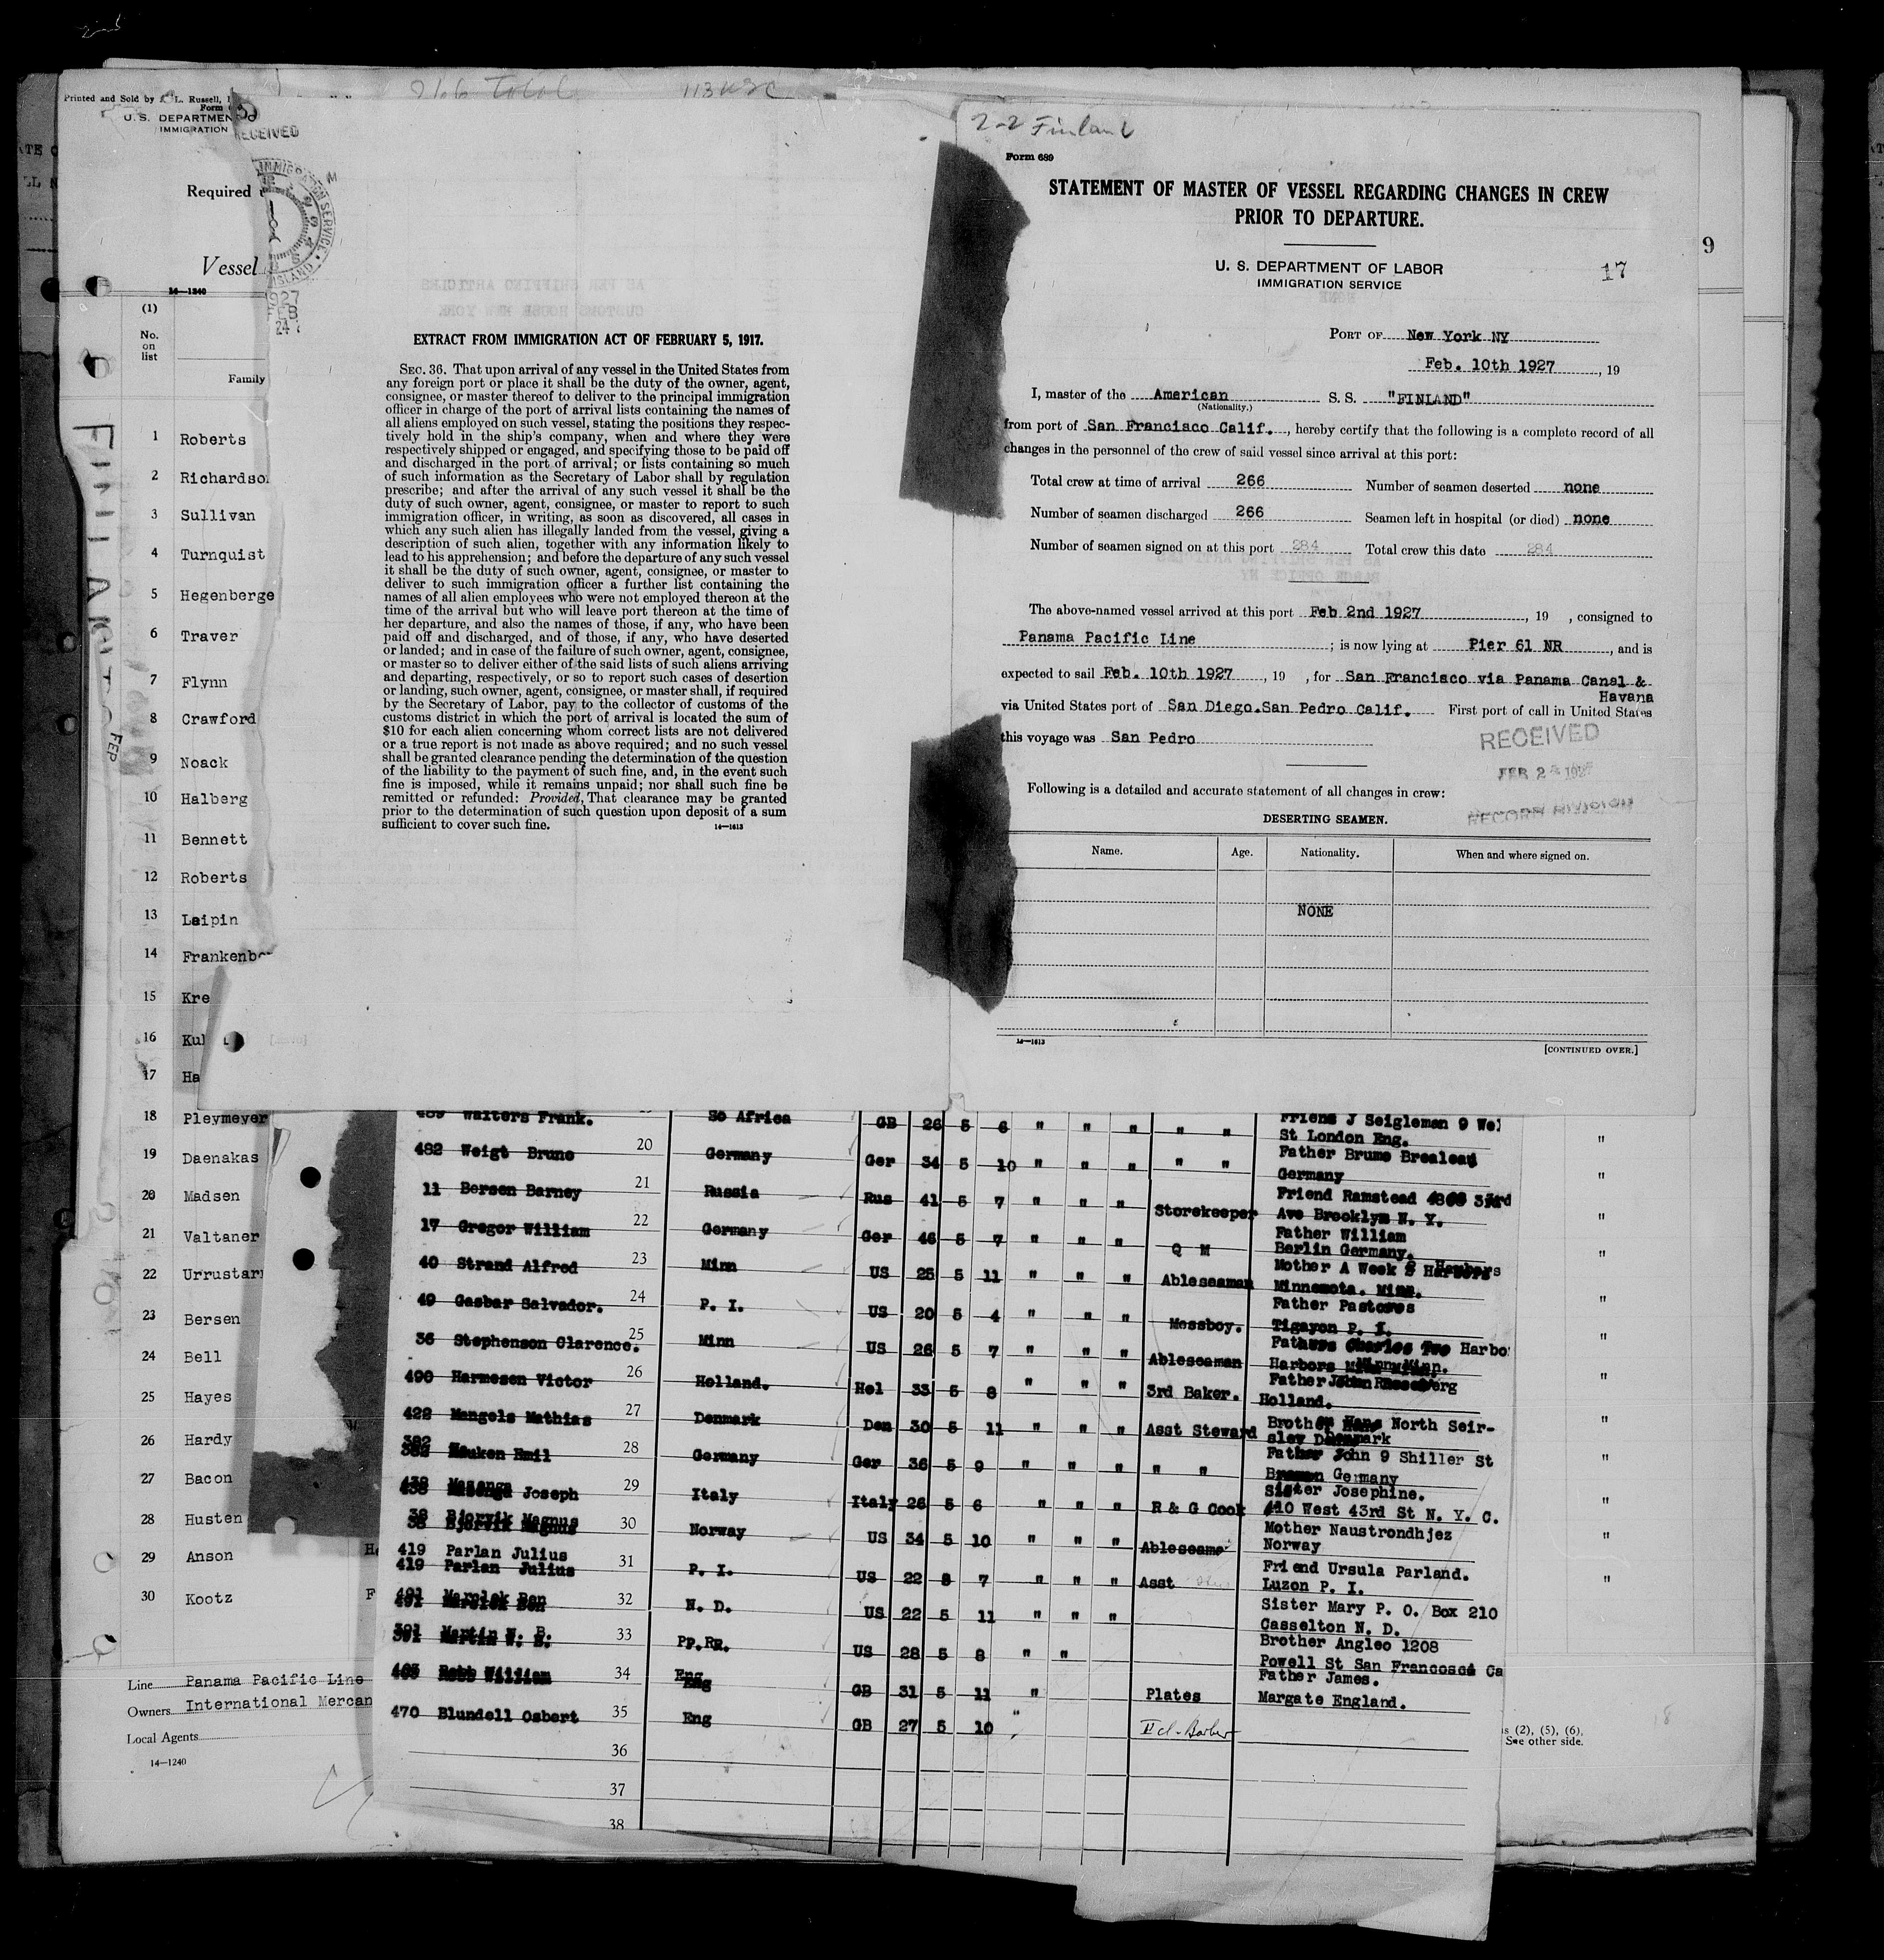 266 Total
113 USC
Printed and Sold by
L. Russell,
Form
U. S. DEPARTMEN
IMMIGRATION
RECEIVED
IMMIGRATION SERVICE
ISLAND
1927
FEB
24
Required
Vessel
14—1240
(1)
No.
on
list
Family
1 Roberts
2 Richardson
3 Sullivan
4 Turnquist
5 Hegenberge
6 Traver
7 Flynn
8 Crawford
9 Noack
10 Halberg
11 Bennett
12 Roberts
13 Leipin
14 Frankenbe
15 Kre
16 Kul
17 Ha
18 Pleymeyer
19 Daenakas
20 Madsen
21 Valtaner
22 Urrustar
23 Bersen
24 Bell
25 Hayes
26 Hardy
27 Bacon
28 Husten
29 Anson
30 Kootz
Line Panama Pacific Line
Owners International Mercan
Local Agents
14—1240
FINLAND
FEB
EXTRACT FROM IMMIGRATION ACT OF FEBRUARY 5, 1917.
SEC. 36. That upon arrival of any vessel in the United States from
any foreign port or place it shall be the duty of the owner, agent,
consignee, or master thereof to deliver to the principal immigration
officer in charge of the port of arrival lists containing the names of
all aliens employed on such vessel, stating the positions they respec-
tively hold in the ship's company, when and where they were
respectively shipped or engaged, and specifying those to be paid off
and discharged in the port of arrival; or lists containing so much
of such information as the Secretary of Labor shall by regulation
prescribe; and after the arrival of any such vessel it shall be the
duty of such owner, agent, consignee, or master to report to such
immigration officer, in writing, as soon as discovered, all cases in
which any such alien has illegally landed from the vessel, giving a
description of such alien, together with any information likely to
lead to his apprehension; and before the departure of any such vessel
it shall be the duty of such owner, agent, consignee, or master to
deliver to such immigration officer a further list containing the
names of all alien employees who were not employed thereon at the
time of the arrival but who will leave port thereon at the time of
her departure, and also the names of those, if any, who have been
paid off and discharged, and of those, if any, who have deserted
or landed; and in case of the failure of such owner, agent, consignee,
or master so to deliver either of the said lists of such aliens arriving
and departing, respectively, or so to report such cases of desertion
or landing, such owner, agent, consignee, or master shall, if required
by the Secretary of Labor, pay to the collector of customs of the
customs district in which the port of arrival is located the sum of
$10 for each alien concerning whom correct lists are not delivered
or a true report is not made as above required; and no such vessel
shall be granted clearance pending the determination of the question
of the liability to the payment of such fine, and, in the event such
fine is imposed, while it remains unpaid; nor shall such fine be
remitted or refunded: Provided, That clearance may be granted
prior to the determination of such question upon deposit of a sum
sufficient to cover such fine.
14—1613
2-2 Finland
Form 689
STATEMENT OF MASTER OF VESSEL REGARDING CHANGES IN CREW
PRIOR TO DEPARTURE.
U. S. DEPARTMENT OF LABOR
IMMIGRATION SERVICE
17
9
PORT OF New York NY
Feb. 10th 1927, 19
I, master of the American S. S. "FINLAND"
(Nationality.)
from port of San Francisco Calif., hereby certify that the following is a complete record of all
changes in the personnel of the crew of said vessel since arrival at this port:
Total crew at time of arrival 266 Number of seamen deserted none
Number of seamen discharged 266 Seamen left in hospital (or died) none
Number of seamen signed on at this port 284 Total crew this date 284
The above-named vessel arrived at this port Feb 2nd 1927, 19 , consigned to
Panama Pacific Line ; is now lying at Pier 61 NR, and is
expected to sail Feb. 10th 1927, 19 , for San Francisco via Panama Canal &
Havana
via United States port of San Diego.San Pedro Calif. First port of call in United States
this voyage was San Pedro
RECEIVED
FEB 2 1927
RECORD DIVISION
Following is a detailed and accurate statement of all changes in crew:
DESERTING SEAMEN.
Name. Age. Nationality. When and where signed on.
NONE
14—1613
[CONTINUED OVER.]
489 Walters Frank. So Africa GB 26 5 6 " " " " " Friend J Seigleman 9 Wel
St London Eng.
482 Weigt Bruno 20 Germany Ger 34 5 10 " " " " " Father Brumo Brealeau
Germany
11 Bersen Barney 21 Russia Rus 41 5 7 " " " Storekeeper Friend Ramstead 4808 3rd
Ave Brooklyn N. Y.
17 Gregor William 22 Germany Ger 46 5 7 " " " Q M Father William
Berlin Germany.
40 Strand Alfred 23 Minn US 25 5 11 " " " Ableseaman Mother A Week 2 Harbors
Minnemota. Minn.
49 Gasbar Salvador. 24 P. I. US 20 5 4 " " " Messboy. Father Pastores
Tigayon P. I.
36 Stephenson Clarence. 25 Minn US 26 5 7 " " " Ableseaman Father Charles Two Harbo
Harbors Minn.
490 Harmesen Victor 26 Holland. Hol 33 5 8 " " " 3rd Baker. Father
Holland.
422 Mangels Mathias 27 Denmark Den 30 5 11 " " " Asst Steward Brother Hans North Seir-
sley Denmark
382 Hauken Emil 28 Germany Ger 36 5 9 " " " " " Father John 9 Shiller St
Bremen Germany
438 Masenga Joseph 29 Italy Italy 26 5 6 " " " R & G Cook Sister Josephine.
410 West 43rd St N. Y. C.
38 Bjorvik Magnus 30 Norway US 34 5 10 " " " Ableseama Mother Naustrondhjez
Norway
419 Parlan Julius
419 Parlan Julius 31 P. I. US 22 8 7 " " " Asst Friend Ursula Parland.
Luzon P. I.
491 Marolek Ben 32 N. D. US 22 5 11 " " " Sister Mary P. O. Box 210
Casselton N. D.
391 Martin N. B. 33 US 28 5 8 " " Brother Angleo 1208
Powell St San Francosco Ca
465 Robb William 34 Eng GB 31 5 11 " Plates Father James.
Margate England.
470 Blundell Osbert 35 Eng GB 27 5 10 " II cl. Barber
36
37
38
s (2), (5), (6),
See other side.
18